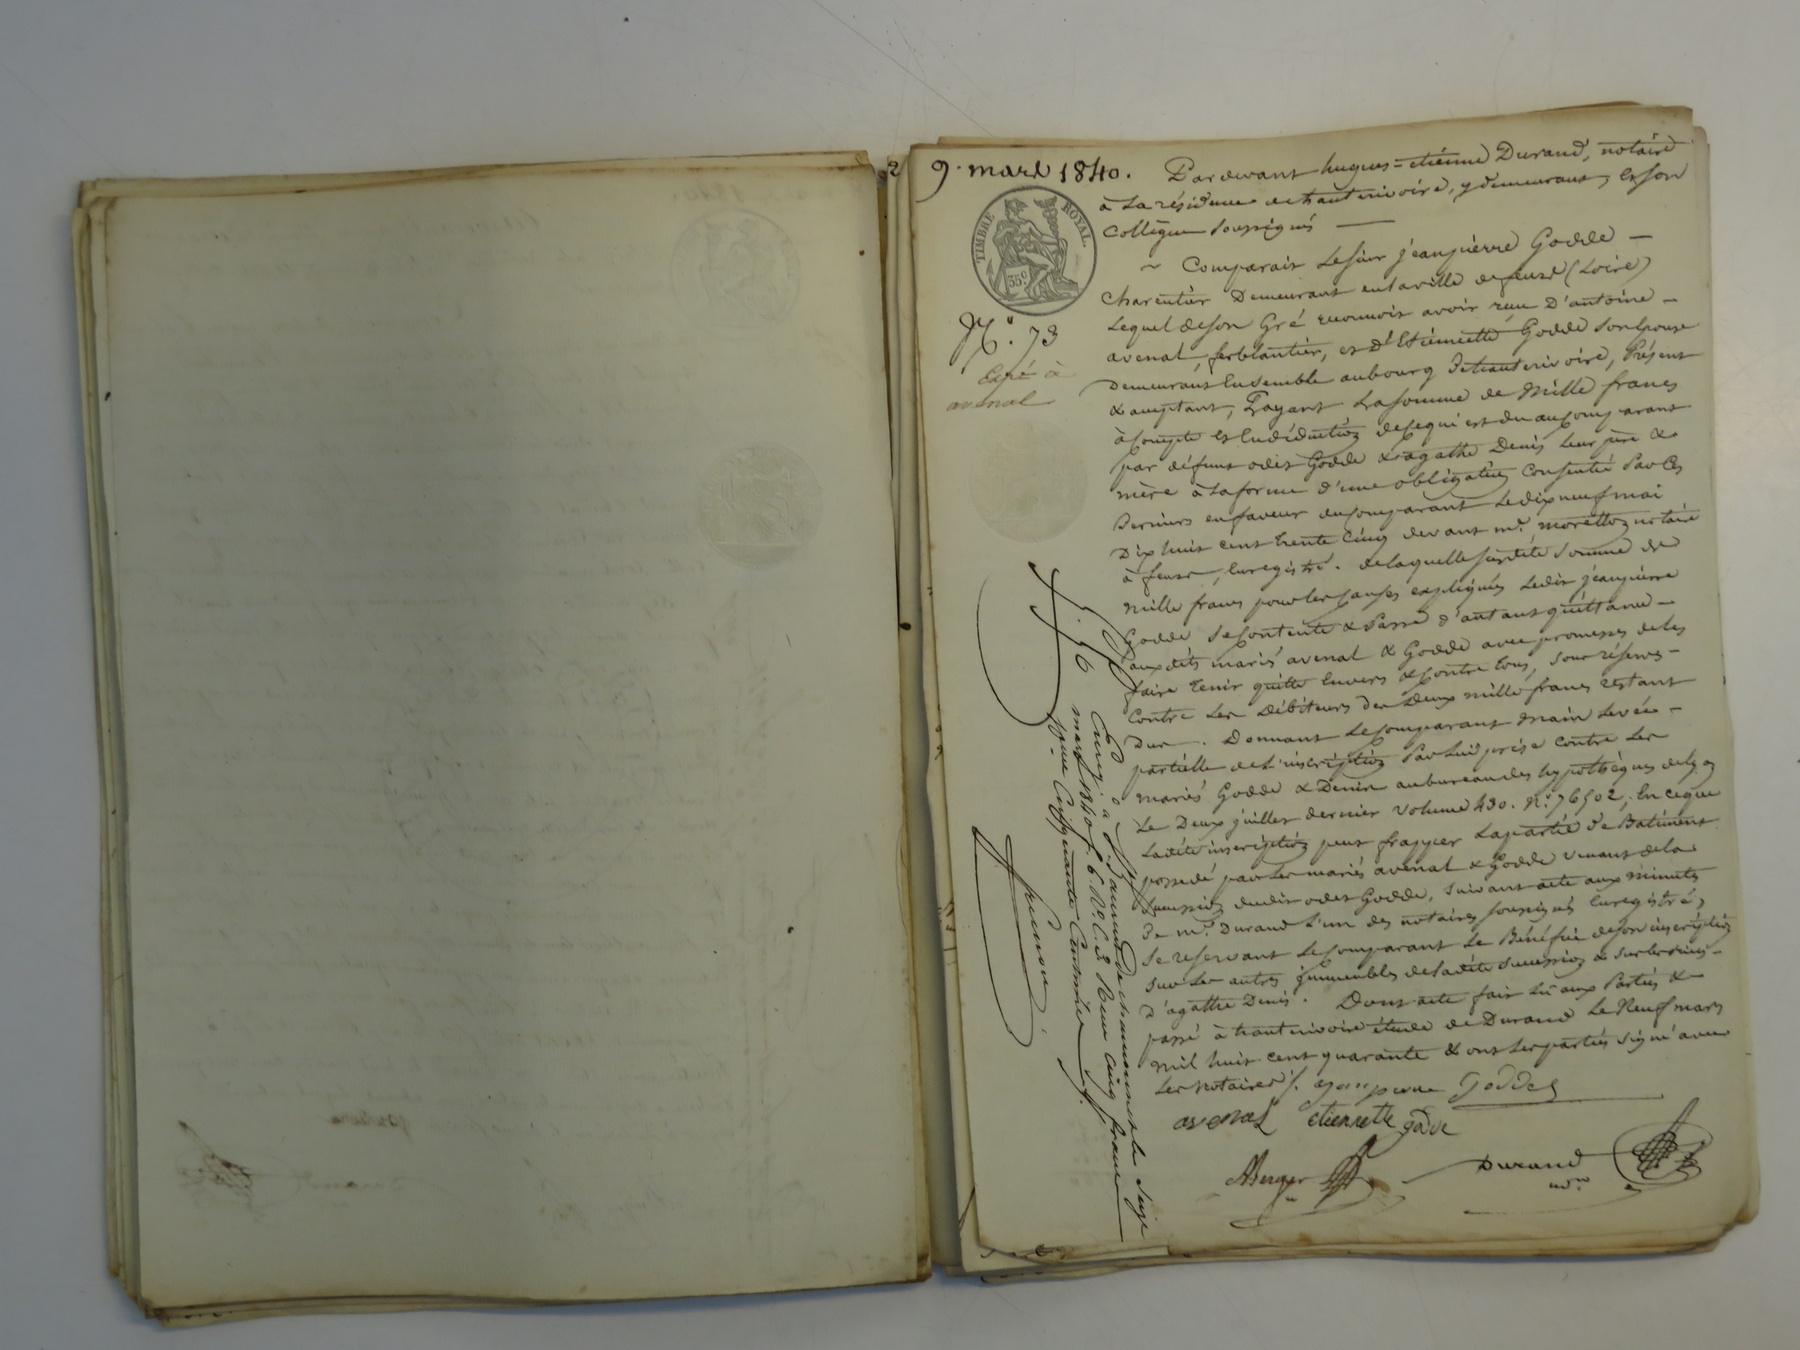 9. mars 1840.
TIMBRE ROYAL.
35 c.
N.° 73
Expé à
avenal
Pardevant hugues=etienne Durand, notaire
à la résidence de hauterivoire, y demeurant, et son
Collègue soussignés —
~ Comparait le sieur jeanpierre Godde —
charentier Demeurant en la ville de feurs (Loire)
Lequel de son Gré reconnoit avoir reçu D'antoine —
avenal, ferblantier, et d'Etiennette Godde son épouse
Demeurant Ensemble au bourg de hauterivoire, Présent
& acceptant, Payant la somme de Mille francs
à compte et En déduction de ce qui est du au comparant
par défunt odet Godde & agathe Denis leur père &
mère à la forme d'une obligation Consentie Par Ces
Derniers en faveur du comparant le dix neuf mai
Dix huit cent trente Cinq devant m.e morellon notaire
à feurs, Enregistré. de laquelle susdite Somme de
Mille francs pour les causes expliquées Ledit jeanpierre
Godde se Contente & Passe d'autant quittance —
aux dits mariés avenal & Godde avec promesses de les
faire tenir quitte Envers & contre tous, sous réserves —
Contre les Débiteurs des Deux mille francs restant
Dus —. Donnant le comparant Main levée —
partielle de l'inscription Par lui prise Contre les
mariés Godde & Denis au bureau des hypothèques de Lyon
Le Deux juillet dernier Volume 430. N.° 76502, En ce que
Ladite inscription peut frapper La partie de Batiment
possedé par les mariés avenal & Godde venant de la
Succession dudit odet Godde, Suivant acte aux minutes
De m.e Durand L'un des notaires soussignés Enregistré,
Se reservant le comparant Le Bénéfice de son inscription
sur les autres immeubles de ladite Succession & sur les siens —
D'agathe Denis. Dont acte fait lu aux Parties &
passé à hauterivoire étude de Durand Le Neuf mars
Mil huit cent quarante & ont les parties signé avec
Les Notaires /. jeanpierre Goddes
avenal etiennette godde
Berger
Durand
n.re
5. 56
Enreg. à St Laurent de chamousset le Seize
mars 1840 f. 6 V.° C. 3 Reçu cinq francs
pour Cinquante Centimes